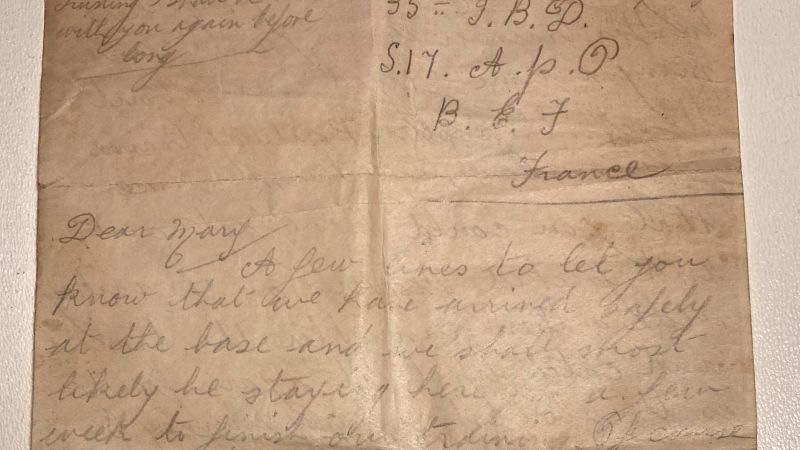 with you again before
long
35 = I. B. D.
S.17. A.P.O
B. E. F
France
Dear Mary
A few lines to let you
know that we have arrived safely
at the base and we shall most
likely be staying here a few
week to finish our training Of course